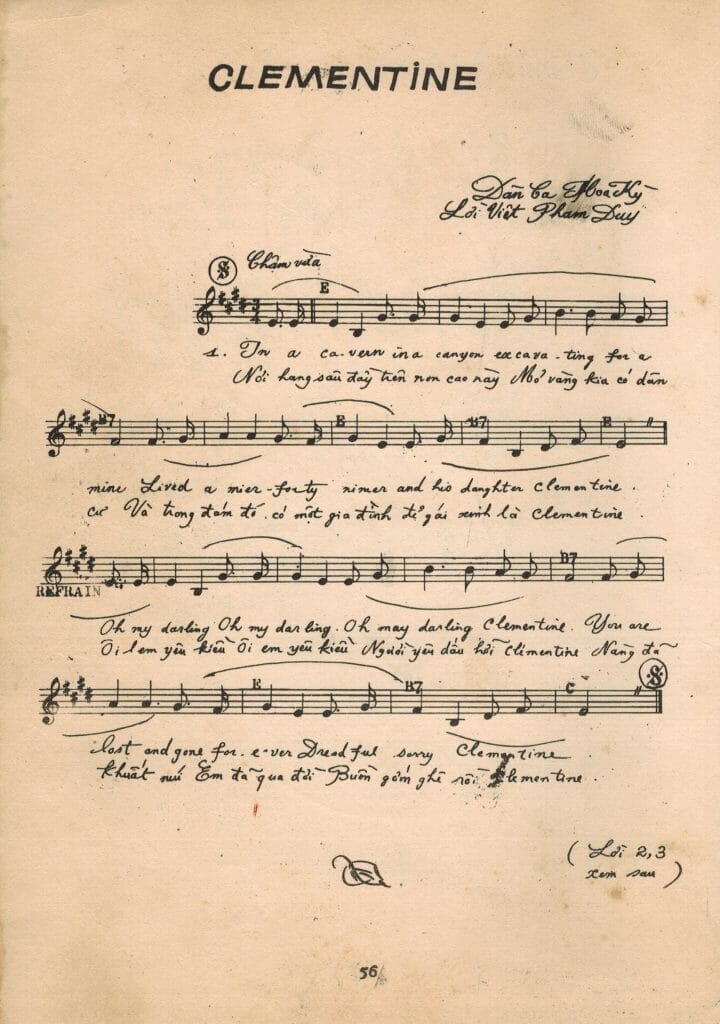 CLEMENTINE
Dân Ca Hoa Kỳ
Lời Việt Phạm Duy
Chậm vừa
E
1. In a ca-vern in a canyon excava-ting for a
Nơi hang sâu đây trên non cao này Mỏ vàng kia có dân
B7 E B7 E
mine Lived a mier-forty nimer and his daughter Clementine.
cư Và trong đám đó có một gia đình đẻ gái xinh là Clementine.
B7
REFRAIN
Oh my darling Oh my dar ling. Oh may darling Clementine. You are
Ôi! em yêu kiều Ôi em yêu kiều Người yêu dấu hỡi Clémentine Nàng đã
E B7 C
lost and gone for. e-ver Dreadful sorry Clementine
khuất núi Em đã qua đời Buồn gớm ghê rồi Clementine.
(Lời 2,3
xem sau)
56